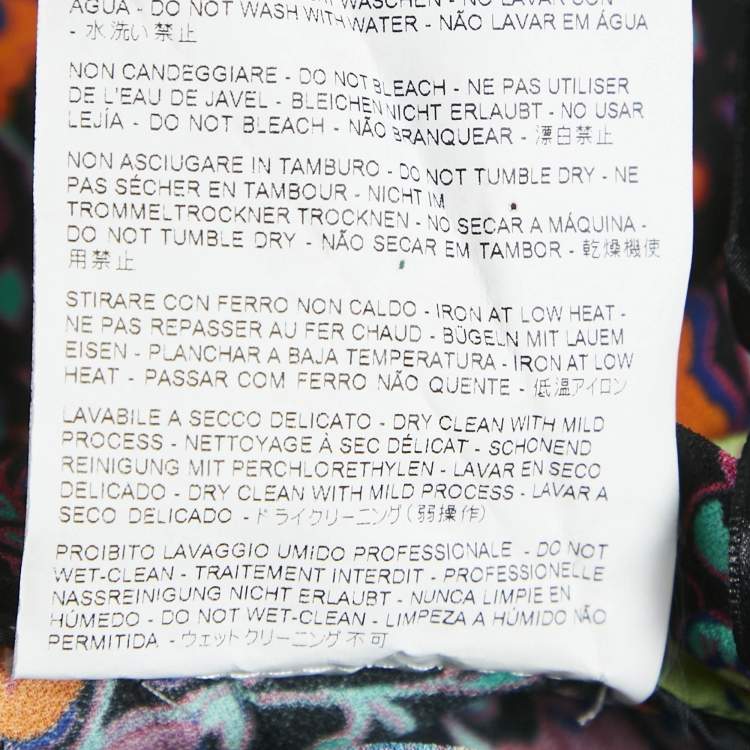 ACQUA - DO NOT WASH WITH WATER - NÃO LAVAR EM ÁGUA
- 水洗い禁止
NON CANDEGGIARE - DO NOT BLEACH - NE PAS UTILISER
DE L'EAU DE JAVEL - BLEICHEN NICHT ERLAUBT - NO USAR
LEJÍA - DO NOT BLEACH - NÃO BRANQUEAR - 漂白禁止
NON ASCIUGARE IN TAMBURO - DO NOT TUMBLE DRY - NE
PAS SÉCHER EN TAMBOUR - NICHT IM
TROMMELTROCKNER TROCKNEN - NO SECAR A MÁQUINA -
DO NOT TUMBLE DRY - NÃO SECAR EM TAMBOR - 乾燥機使
用禁止
STIRARE CON FERRO NON CALDO - IRON AT LOW HEAT -
NE PAS REPASSER AU FER CHAUD - BÜGELN MIT LAUEM
EISEN - PLANCHAR A BAJA TEMPERATURA - IRON AT LOW
HEAT - PASSAR COM FERRO NÃO QUENTE - 低温アイロン
LAVABILE A SECCO DELICATO - DRY CLEAN WITH MILD
PROCESS - NETTOYAGE À SEC DÉLICAT - SCHONEND
REINIGUNG MIT PERCHLORETHYLEN - LAVAR EN SECO
DELICADO - DRY CLEAN WITH MILD PROCESS - LAVAR A
SECO DELICADO - ドライクリーニング(弱操作)
PROIBITO LAVAGGIO UMIDO PROFESSIONALE - DO NOT
WET-CLEAN - TRAITEMENT INTERDIT - PROFESSIONELLE
NASSREINIGUNG NICHT ERLAUBT - NUNCA LIMPIE EN
HÚMEDO - DO NOT WET-CLEAN - LIMPEZA A HÚMIDO NÃO
PERMITIDA - ウェットクリーニング不可